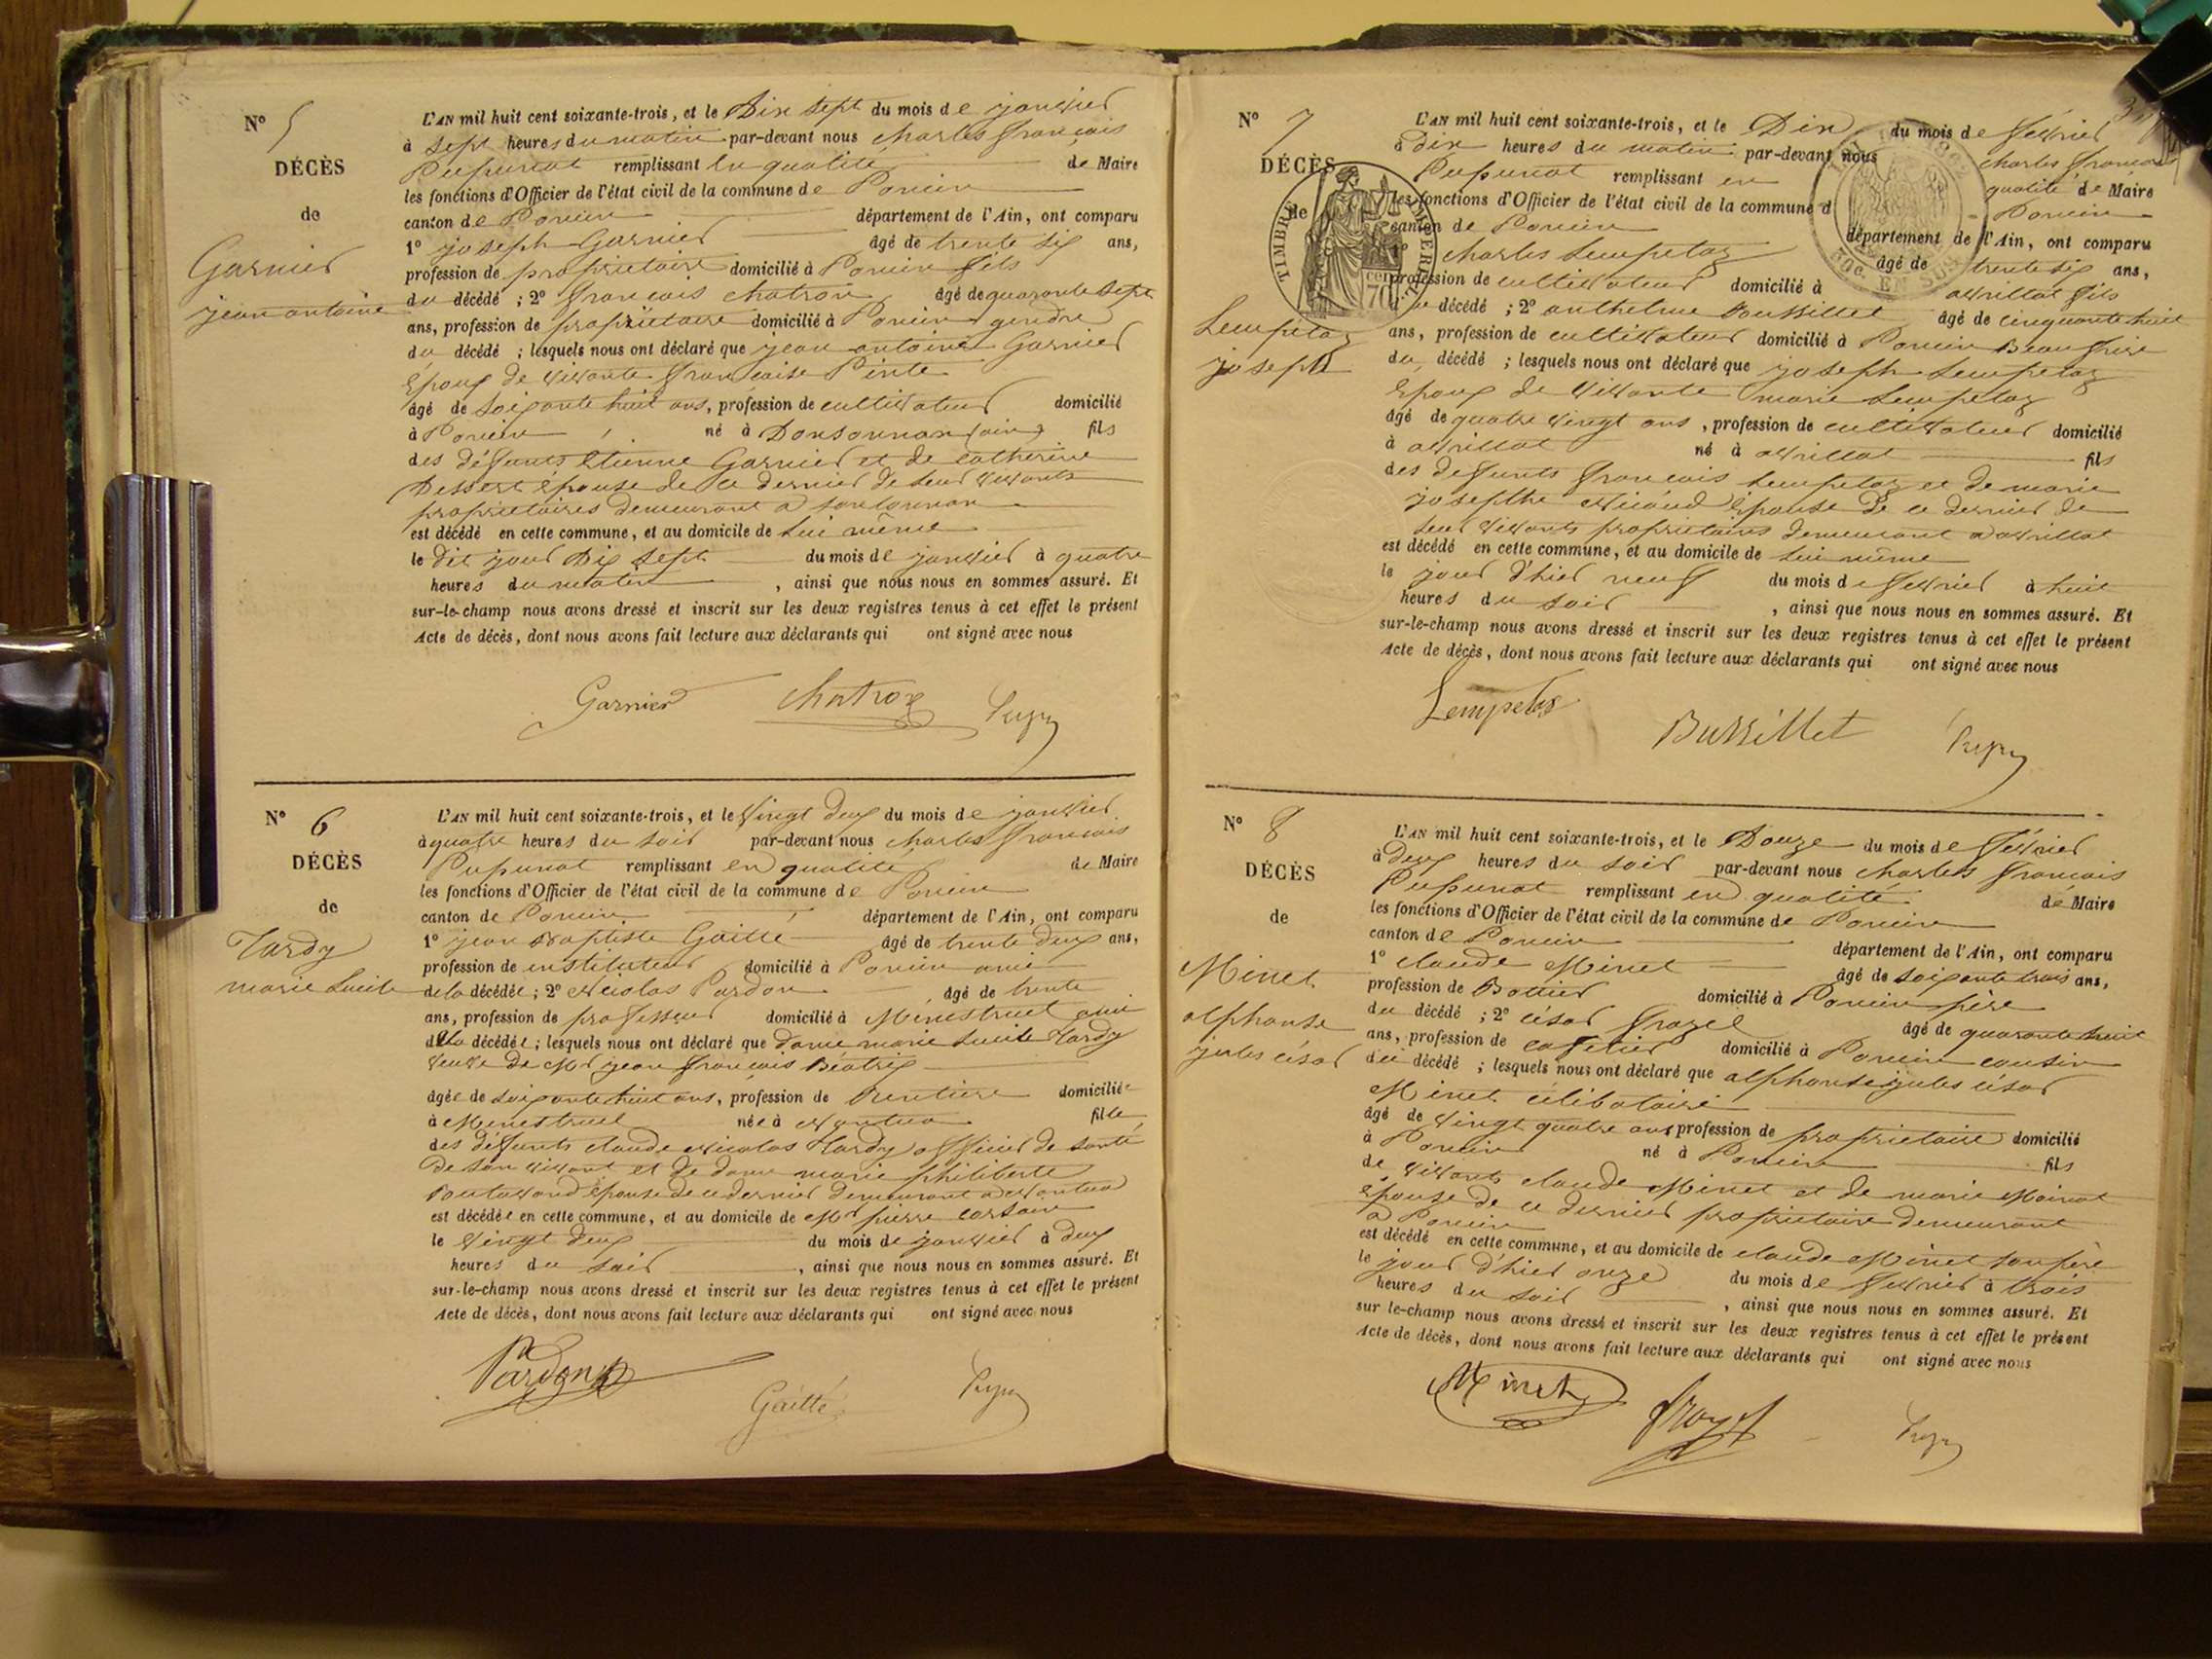 N° 5
DÉCÈS
de
Garnier
jean antoine
L'AN mil huit cent soixante-trois, et le Dix sept du mois de janvier
à sept heures du matin par-devant nous charles françois
Pupunat remplissant en qualité de Maire
les fonctions d'Officier de l'état civil de la commune de Poncin
canton de Poncin département de l'Ain, ont comparu
1° joseph Garnier âgé de trente six ans,
profession de propriétaire domicilié à Poncin fils
du décédé ; 2° françois chatron âgé de quarante sept
ans, profession de propriétaire domicilié à Poncin gendre
du décédé ; lesquels nous ont déclaré que jean antoine Garnier
époux de vivante françoise
âgé de soixante huit ans, profession de cultivateur domicilié
à Poncin né à (ain) fils
des défunts étienne Garnier et de catherine
épouse de ce dernier de leur vivants
propriétaires demeurant à
est décédé en cette commune, et au domicile de lui même
le dit jour dix sept du mois de janvier à quatre
heures du matin , ainsi que nous nous en sommes assuré. Et
sur-le-champ nous avons dressé et inscrit sur les deux registres tenus à cet effet le présent
Acte de décès, dont nous avons fait lecture aux déclarants qui ont signé avec nous
Garnier Chatron
N° 6
DÉCÈS
de
Tardy
marie Lucile
L'AN mil huit cent soixante-trois, et le vingt deux du mois de janvier
à quatre heures du soir par-devant nous charles françois
Pupunat remplissant en qualité de Maire
les fonctions d'Officier de l'état civil de la commune de Poncin
canton de Poncin département de l'Ain, ont comparu
1° jean Baptiste Gaitte âgé de trente deux ans,
profession de instituteur domicilié à Poncin ami
de la décédée ; 2° Nicolas Pardon âgé de trente
ans, profession de professeur domicilié à Menestruel ami
de la décédée ; lesquels nous ont déclaré que dame marie Lucile Tardy
veuve de Mr jean françois Béatrix
âgée de soixante huit ans, profession de Rentière domiciliée
à Menestruel née à Nantua fille
des défunts claude Nicolas Tardy officier de santé
de son vivant et de dame marie philiberte
épouse de ce dernier demeurant à Nantua
est décédée en cette commune, et au domicile de Mr pierre
le vingt deux du mois de janvier à deux
heures du soir , ainsi que nous nous en sommes assuré. Et
sur-le-champ nous avons dressé et inscrit sur les deux registres tenus à cet effet le présent
Acte de décès, dont nous avons fait lecture aux déclarants qui ont signé avec nous
Pardon Gaitte
N° 7
DÉCÈS
de
Lempetaz
joseph
TIMBRE
70
30c. EN SUS
L'AN mil huit cent soixante-trois, et le Dix du mois de février
à dix heures du matin par-devant nous charles françois
Pupunat remplissant en qualité de Maire
les fonctions d'Officier de l'état civil de la commune d Poncin
canton de Poncin département de l'Ain, ont comparu
1° charles Lempetaz âgé de trente six ans,
profession de cultivateur domicilié à avrillat fils
du décédé ; 2° anthelme Bussillet âgé de cinquante huit
ans, profession de cultivateur domicilié à Poncin Beau frère
du décédé ; lesquels nous ont déclaré que joseph Lempetaz
époux de vivante marie Lempetaz
âgé de quatre vingt ans, profession de cultivateur domicilié
à avrillat né à avrillat fils
des défunts françois Lempetaz et de marie
josephte épouse de ce dernier de
leur vivants propriétaires demeurant à avrillat
est décédé en cette commune, et au domicile de lui même
le jour d'hier neuf du mois de février à huit
heures du soir , ainsi que nous nous en sommes assuré. Et
sur-le-champ nous avons dressé et inscrit sur les deux registres tenus à cet effet le présent
Acte de décès, dont nous avons fait lecture aux déclarants qui ont signé avec nous
Lempetaz Bussillet
N° 8
DÉCÈS
de
Minet
alphonse
jules césar
L'AN mil huit cent soixante-trois, et le Douze du mois de février
à deux heures du soir par-devant nous charles françois
Pupunat remplissant en qualité de Maire
les fonctions d'Officier de l'état civil de la commune de Poncin
canton de Poncin département de l'Ain, ont comparu
1° claude Minet âgé de soixante trois ans,
profession de Bottier domicilié à Poncin père
du décédé ; 2° césar frazet âgé de quarante huit
ans, profession de cafetier domicilié à Poncin cousin
du décédé ; lesquels nous ont déclaré que alphonse jules césar
Minet célibataire
âgé de vingt quatre ans profession de propriétaire domicilié
à Poncin né à Poncin fils
de vivants claude Minet et de marie
épouse de ce dernier propriétaire demeurant
à Poncin
est décédé en cette commune, et au domicile de claude Minet son père
le jour d'hier onze du mois de février à trois
heures du soir , ainsi que nous nous en sommes assuré. Et
sur le-champ nous avons dressé et inscrit sur les deux registres tenus à cet effet le présent
Acte de décès, dont nous avons fait lecture aux déclarants qui ont signé avec nous
Minet frazet